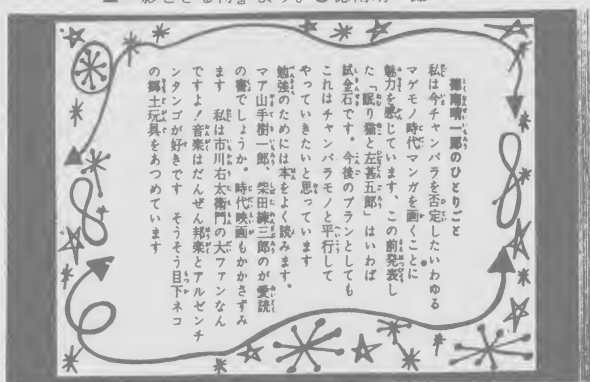 徳南晴一郎のひとりごと
私は今チャンバラを否定したいわゆる
マゲモノ時代マンガを画くことに
魅力を感じています、この前発表し
た「眠り猫と左甚五郎」はいわば
試金石です。今後のプランとしても
これはチャンバラモノと平行して
やっていきたいと思っています
勉強のためには本をよく読みます。
マア山手樹一郎、柴田錬三郎のが愛読
の書でしょうか。時代映画もかかさずみ
ます　私は市川右太衛門の大ファンなん
ですよ！音楽はだんぜん邦楽とアルゼンチ
ンタンゴが好きです　そうそう目下ネコ
の郷土玩具をあつめています